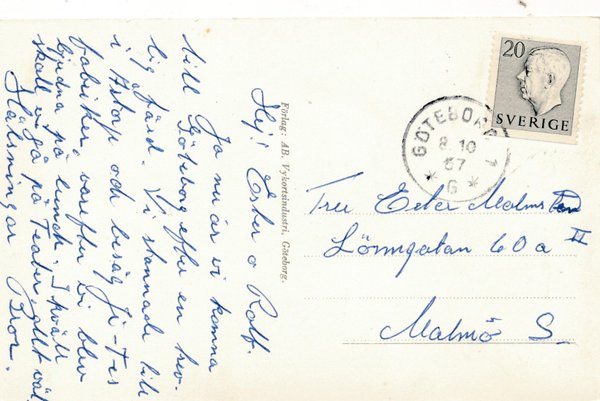 Hej! Ester o Rolf.
Ja nu är vi komna
till Göteborg efter en trev-
lig färd. Vi stannade till
i Åstorp och besåg Ji-Tes
fabriker, varefter vi blev
bjudna på lunch. I kväll
skall vi gå på Teater, allt väl
Hälsningar Bror.
Förlag: AB. Vykortsindustri, Göteborg.
20
SVERIGE
GÖTEBORG 1
8.10
57
* G *
Fru Ester Malmsten
Lönngatan 60a II
Malmö S